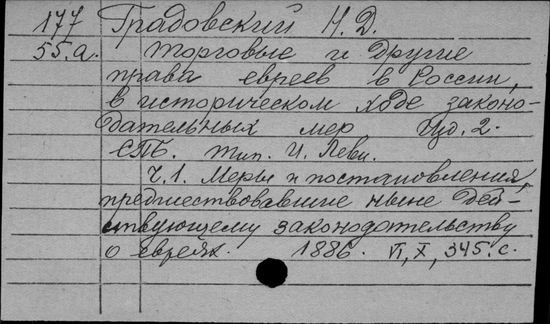 177 Градовский Н. Д.
55.а. Торговые и другие
права евреев в России,
в историческом ходе законо-
дательных мер Изд. 2.
СПБ. Тип. И. Леви.
Ч.1. Меры и постановления,
предшествовавшие ныне дей-
ствующему законодательству
о евреях. 1886. VI, X, 345. с.